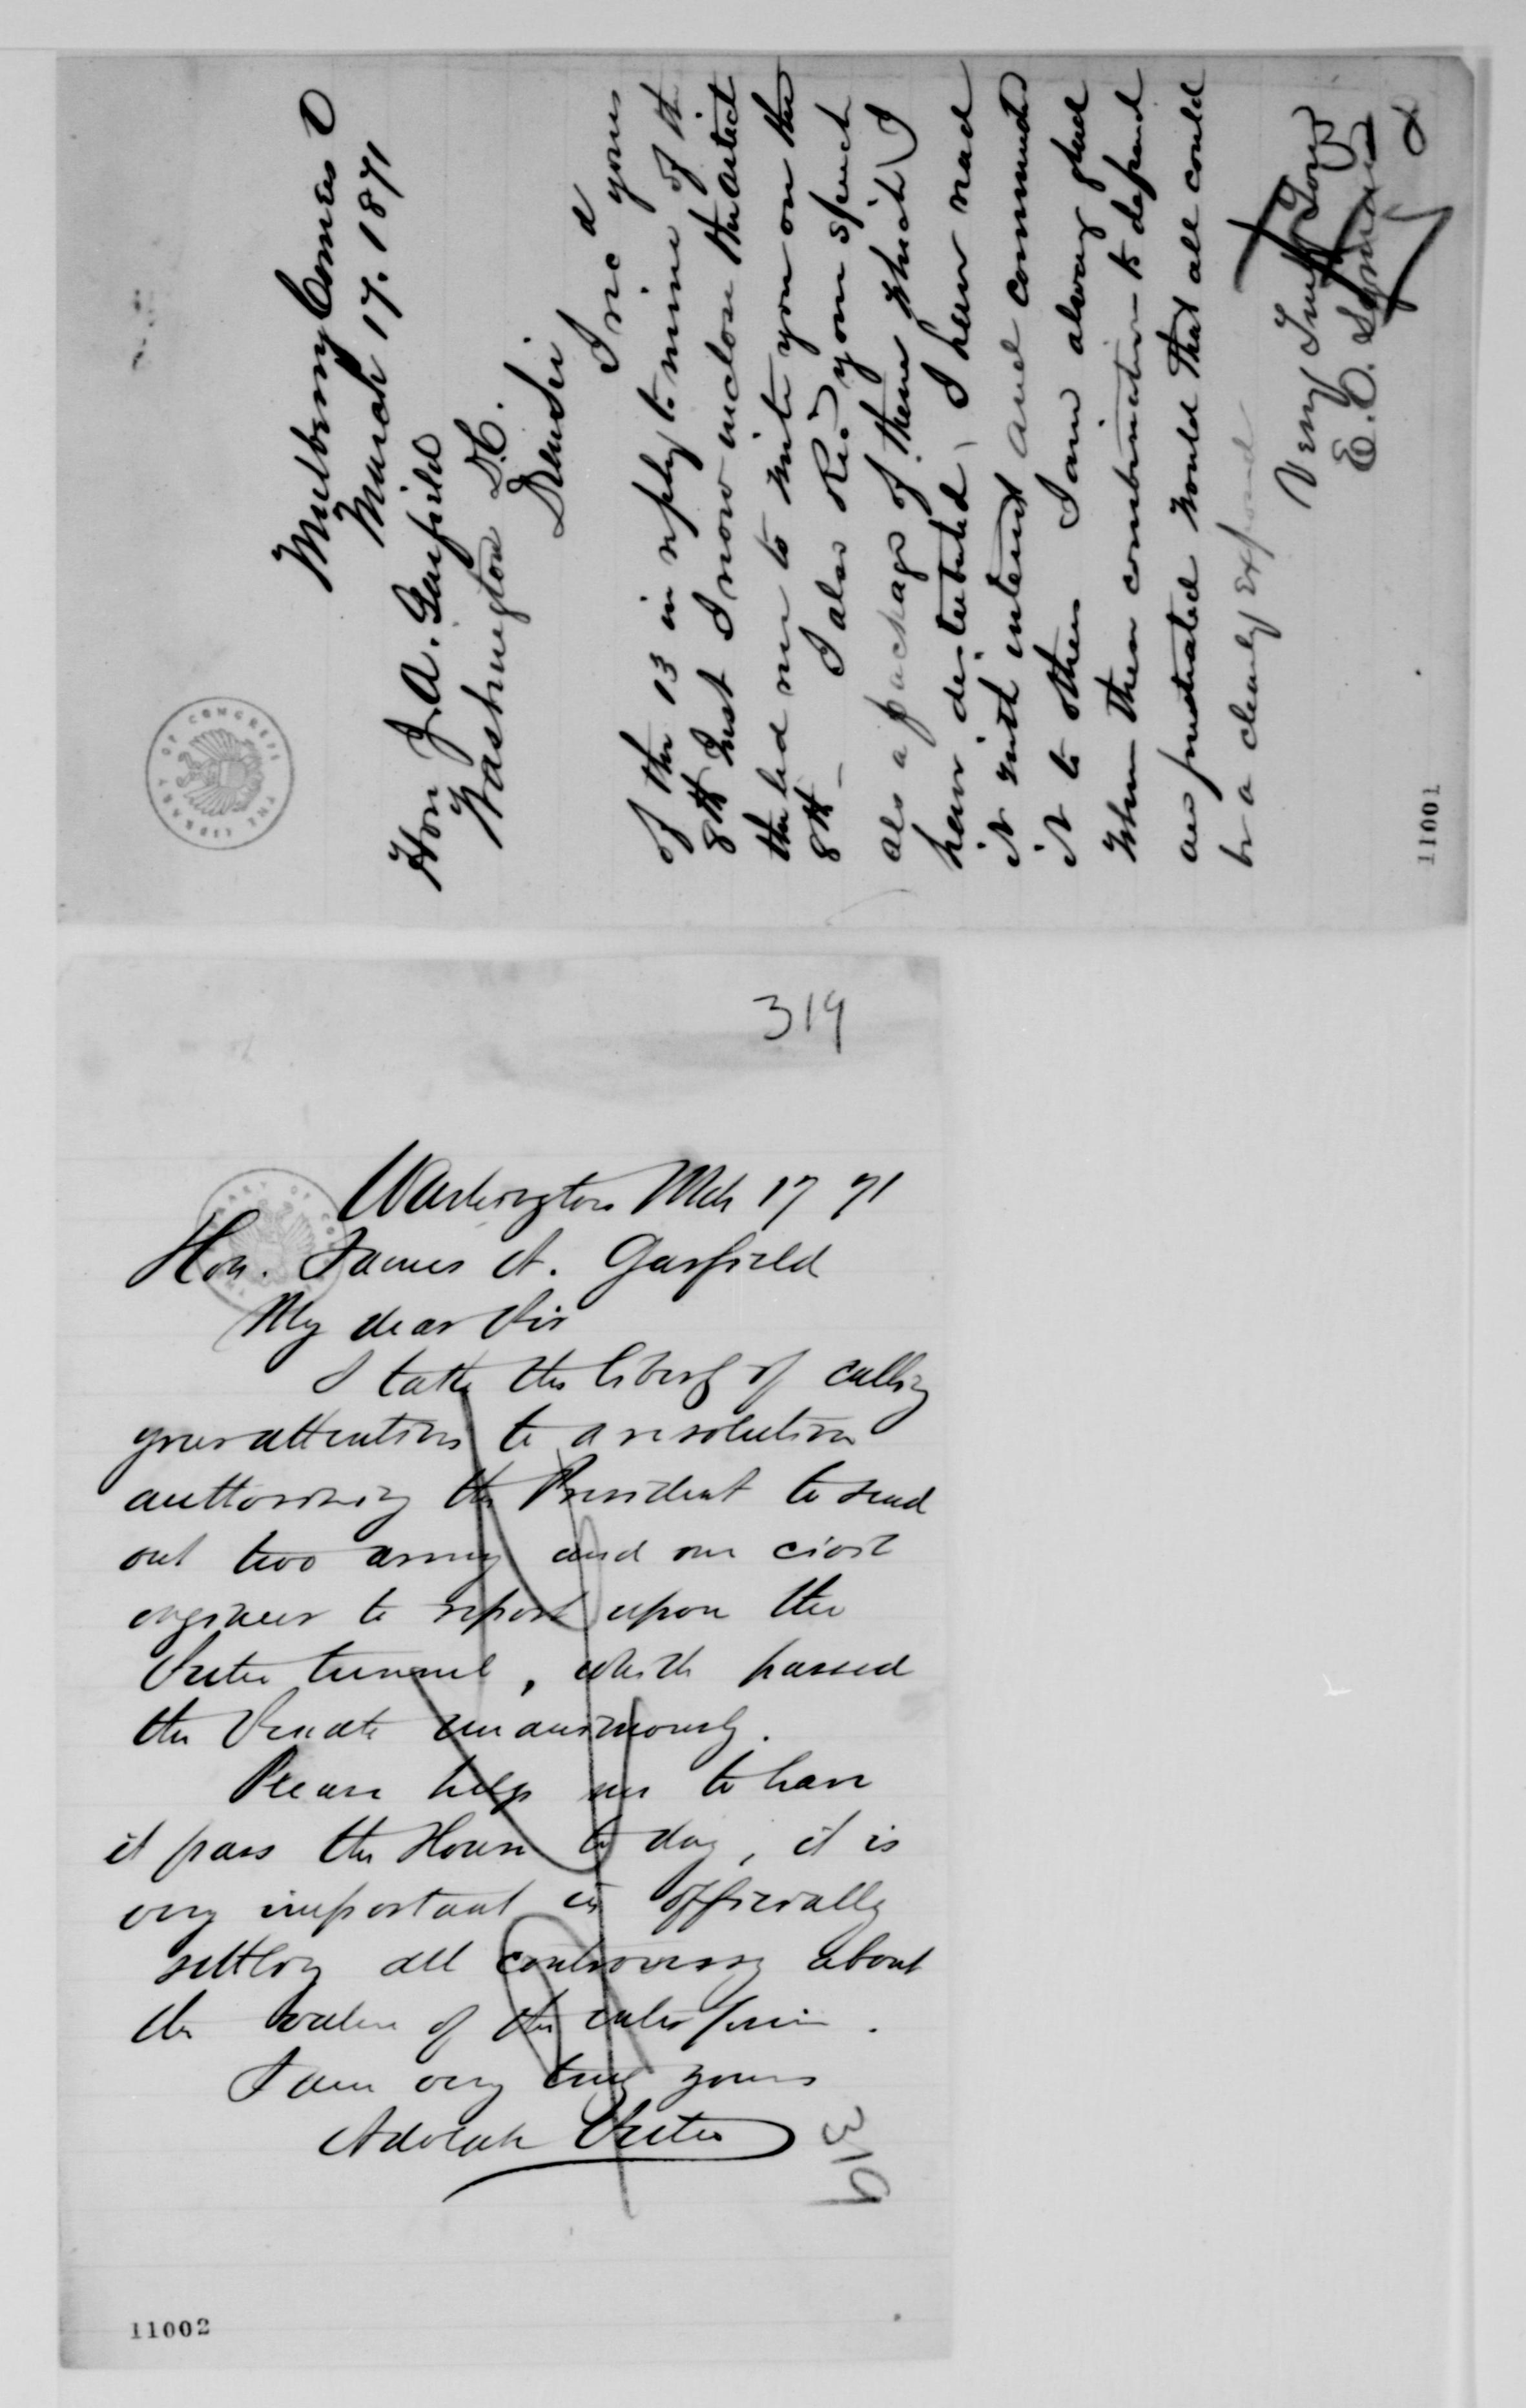 Mulberry Corners O
March 17. 1871
Hon J. A. Garfield
Washington D.C.
Dear Sir
I rec'd yours
of the 13 in reply to mine of the
8th Inst I now inclose the article
that led me to write you on the
8th — I also Recd your speech
also a package of them which I
have distributed, I have read
it with interest and commended
it to others I am always glad
when these combinations to defraud
are frustrated would that all could
be a clearly exposed
Very Truly Yours
E. C.
11001
LIBRARY OF CONGRESS
319
Washington Mch 17 71
Hon. James A. Garfield
My dear Sir
I take the liberty of calling
your attention to a resolution
authorizing the President to send
out two army and one civil
engineer to report upon the
Sutro tunnel, which passed
the Senate unanimously.
Please help me to have
it pass the House to day, it is
very important in officially
settling all controversy about
the value of the enterprise.
I am very truly yours
Adolph Sutro
319
11002